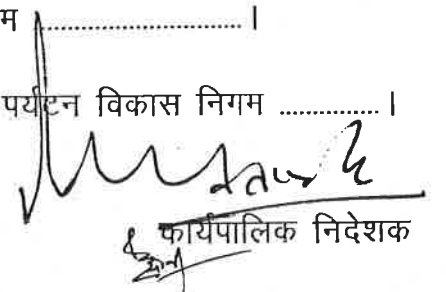 म ........................... ।
पर्यटन विकास निगम .............. ।
कार्यपालिक निदेशक